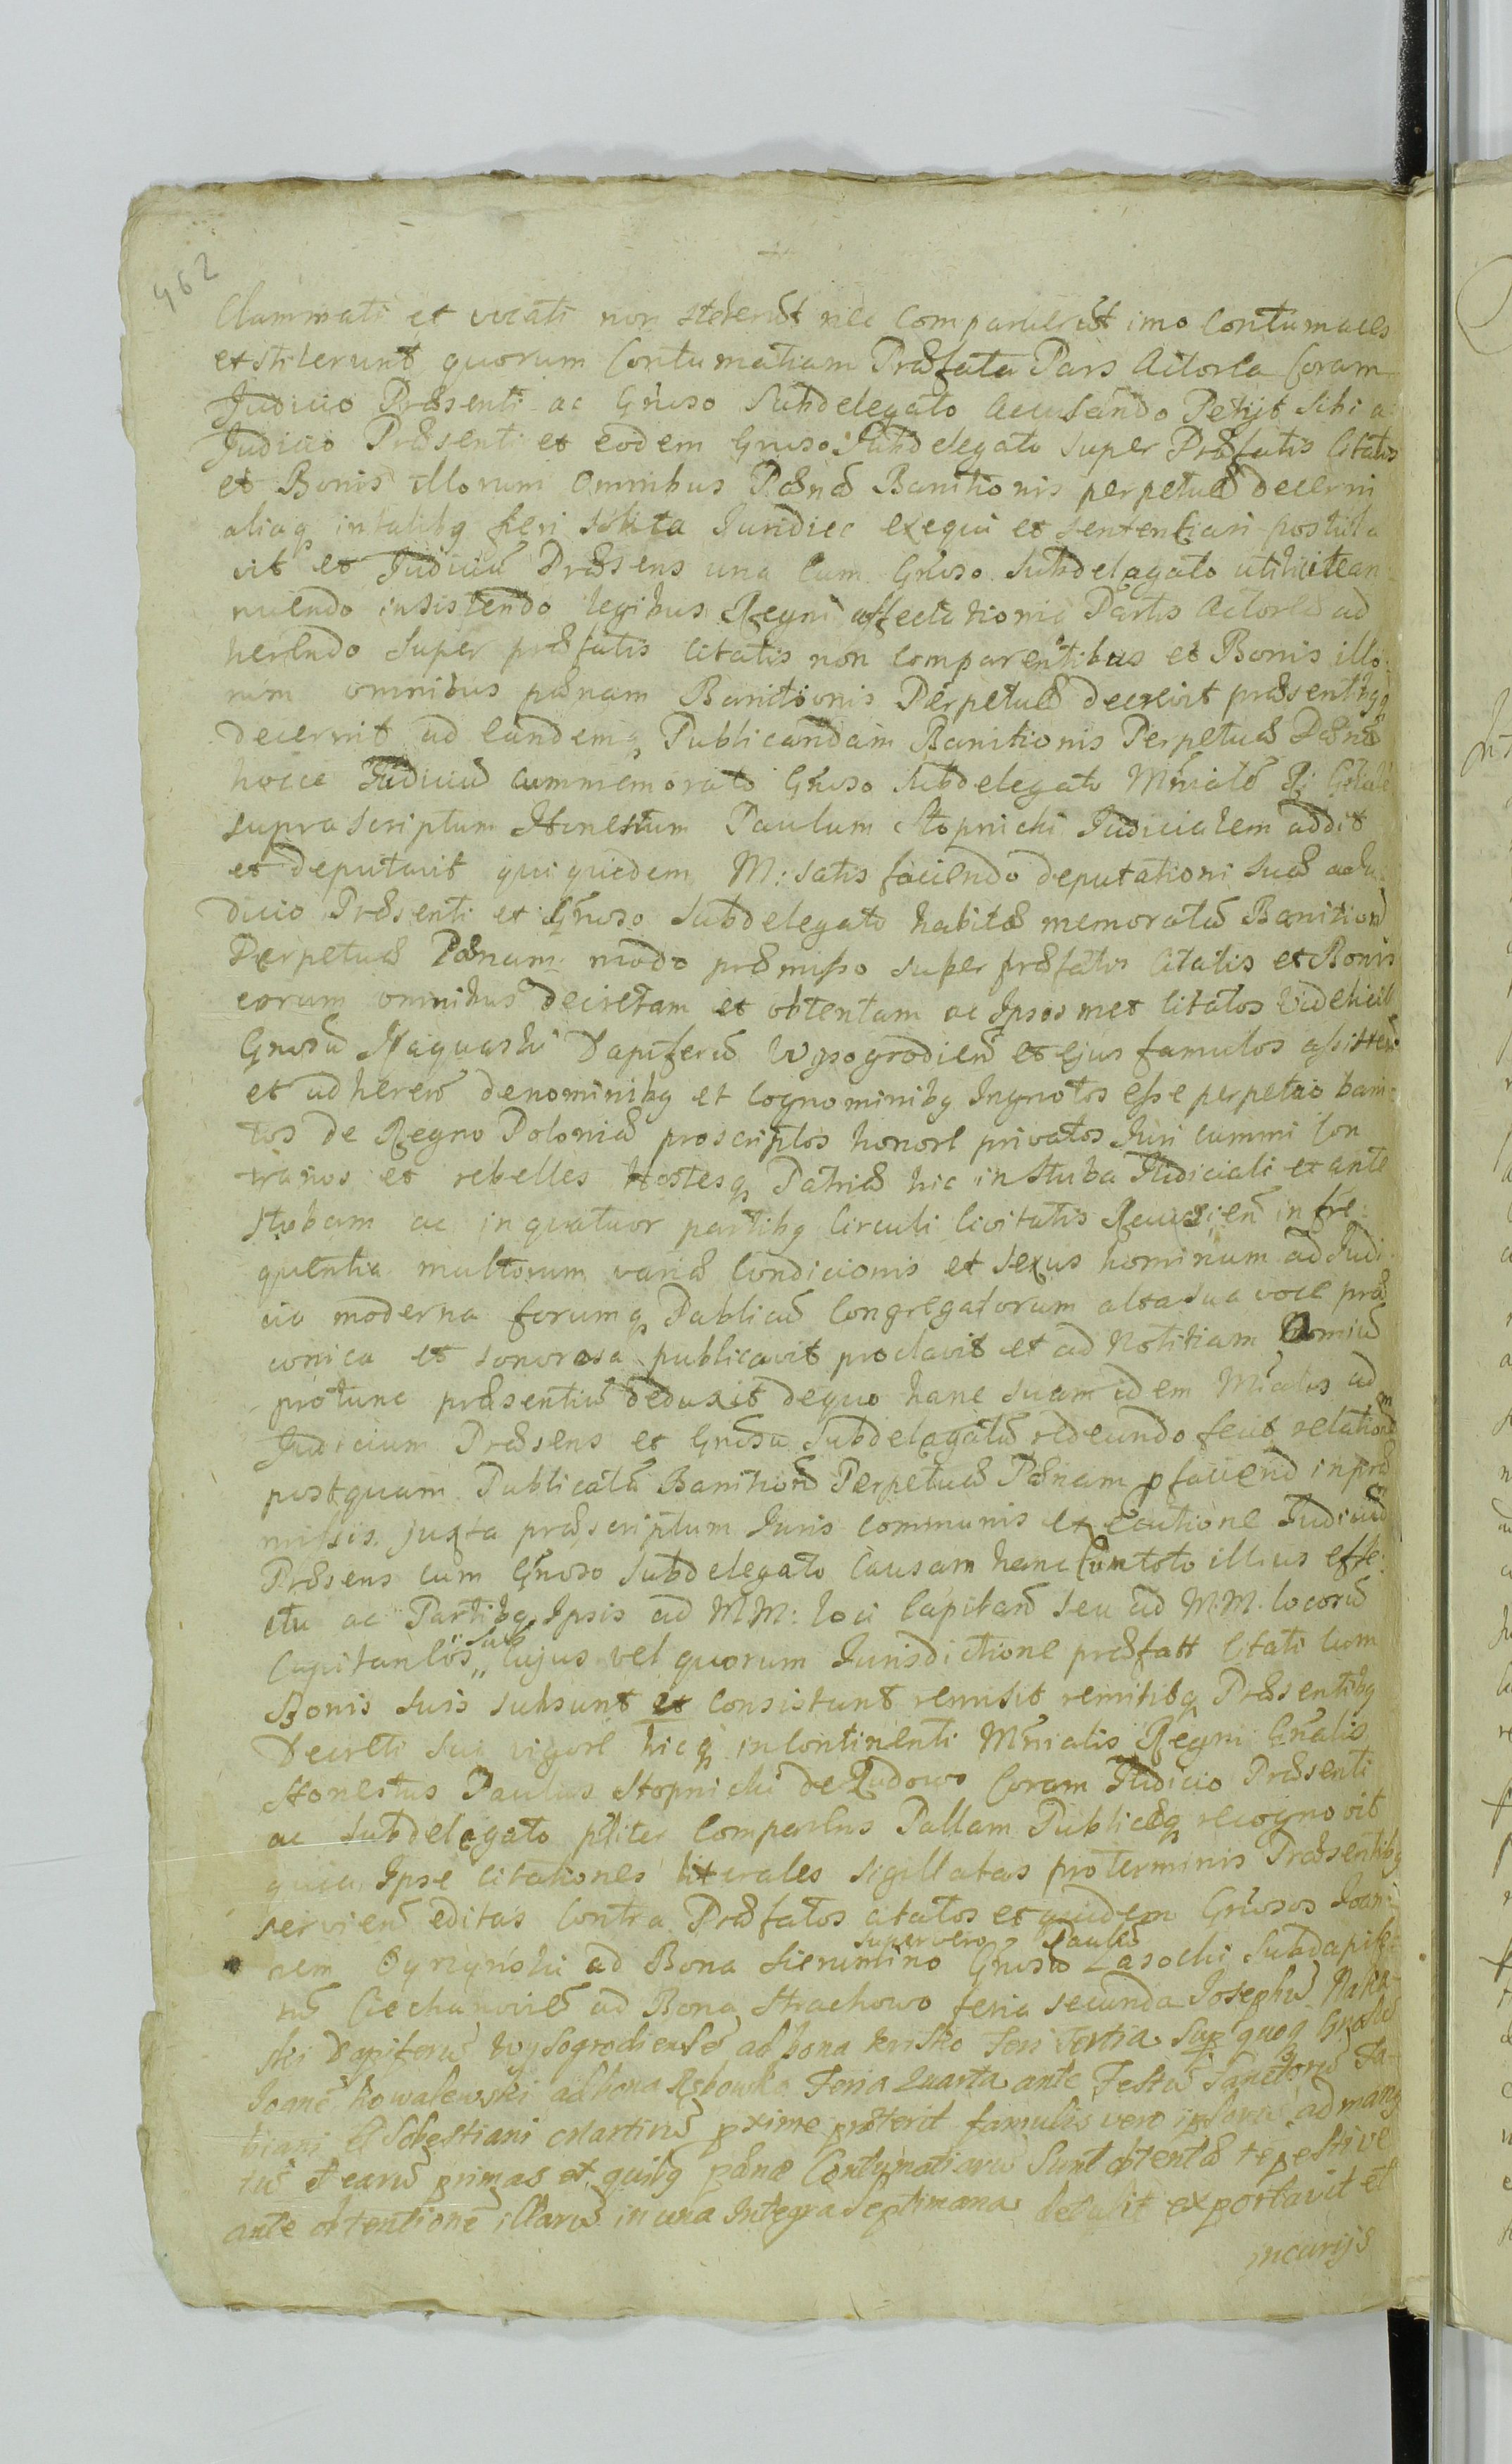 962
Clammati et vocati non steterũt nec comparuerũt imo Contumaces
exstiterunt quorum Contumatiam Præfata Pars Actorea Coram
Judicio Præsenti ac Gnroso Subdelegato Accusando Petijt sibi a
Judicio Præsenti et eodem Gnroso Subdelegato super Præfatis Citatis
et Bonis illorum Omnibus Pænã Banitionis perpetuæ decerni
aliaq intalibq fieri solita Juridice exequi et sententiari postula
vit et Judiciũ Præsens una Cum Gnroso Subdelegato
nuendo insistendo legibus Regni affectationiq Partis Actoreæ ad
herendo super præfatis Citatis non comparentibus et Bonis illo:
rum omnibus pænam Banitionis Perpetuæ decrevit præsentibqq
decernit ad eandemq Publicandam Banitionis Perpetuæ Pænã
hocce Judiciũ cummemorato Gnroso Subdelegato Mnialẽ Rg Gnalẽ
supra scriptum Honestum Paulum Stopnicki Judicialem addit
et deputavit qui quidem M: satis faciendo deputationi suæ a Ju
dicio Præsenti et Gnroso Subdelegato habitæ memoratã Banitionis
Perpetuæ Pænam modo præmisso super præfatis Citatis et Bonis
eorum omnibus decretam et obtentam ac Ipsos met Citatos videlicet
Gnrosũ Dapiferũ Wyssogrodien et Ejus famulos assisten
et adheren denominibq et Cognominibq Ingnotos esse perpetuo bani
tos de Regno Poloniæ proscriptos honore privatos Juri cummi Con
trarios et rebelles Hostesq Patriæ hic in Stuba Judiciali et ante
stubam ac in quatuor partibq Circuli Civitatis in fre:
quentia multorum variæ Condicionis et sexus hominum ad Judi
cia moderna forumq Publicũ Congregatorum alta sua voce præ
conica et sonorosa publicavit proclavit et ad Notitiam Omniũ
protunc præsentiũ deduxit dequo hanc suam idem Mnialis ad
Judicium Præsens et Gnrosũ Subdelagatũ redeundo fecit relationẽ
postquam Publicatã Banitionis Perpetuæ Pænam p faciend inpræ
missis juxta præscriptum Juris communis executione Judiciũ
Præsens cum Gnroso Subdelegato Causam hanc Cum toto illius effe
ctu ac Partibq Ipsis ad MM: loci Capitan seu ad M.M. locorũ
Capitaneos sub Cujus vel quorum Jurisdictione præfatt Citati cum
Bonis suis subsunt et Consistunt remisit remititq Præsentibq
Decreti sui vigore hicq incontinenti Mnialis Regni Gnalis
Honestus Paulus Stopnicki de Coram Judicio Præsenti
ac Subdelegato plliter Comparens Pallam Publiceq recognovit
quia Ipse Citationes literales sigillatas proterminis Præsentibq
servien editas Contra Præfatos citatos et quidem Gnrosos Joan
nem ad Bona super vero Gnrosũ Paulũ Lasocki Subdapife
rũ Ciechanoviẽ ad Bona Strachowo feria secunda Josephũ
ski Dapiferũ Wyssogrodiensẽ ad bona feri Tertia Sup quoq Gnrosũ
Joanẽ Kowalewski ad bona Rębowko Feria Quarta ante Festũ Sanctorũ Fa
biani et Sebestiani Martirũ pxime præterit famulis vero ipsorũ ad manq
tũ et earũ primas et quibq pænæ Contumatiarũ Sunt obtentæ tepestive
ante obtentionẽ illarũ in una Integra Septimana detulit exportavit et
incurijs